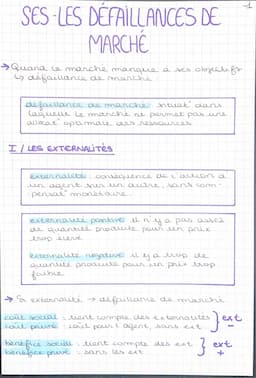 SES - LES DÉFAILLANCES DE
MARCHÉ
→ Quand le marché manque à ses objectifs
↳ défaillance de marché
défaillance de marché : situat° dans
laquelle le marché ne permet pas une
allocat° optimale des ressources
I / LES EXTERNALITÉS
externalité : conséquence de l'action d'
un agent sur un autre, sans com-
pensat° monétaire
externalité positive : il n'y a pas assez
de quantité produite pour un prix
trop élevé
externalité négative : il y a trop de
quantité produite pour un prix trop
faible
→ Si externalité → défaillance de marché
coût social : tient compte des externalités } ext
coût privé : coût pour l'agent, sans ext -
bénéfice social : tient compte des ext } ext
bénéfice privé : sans les ext +